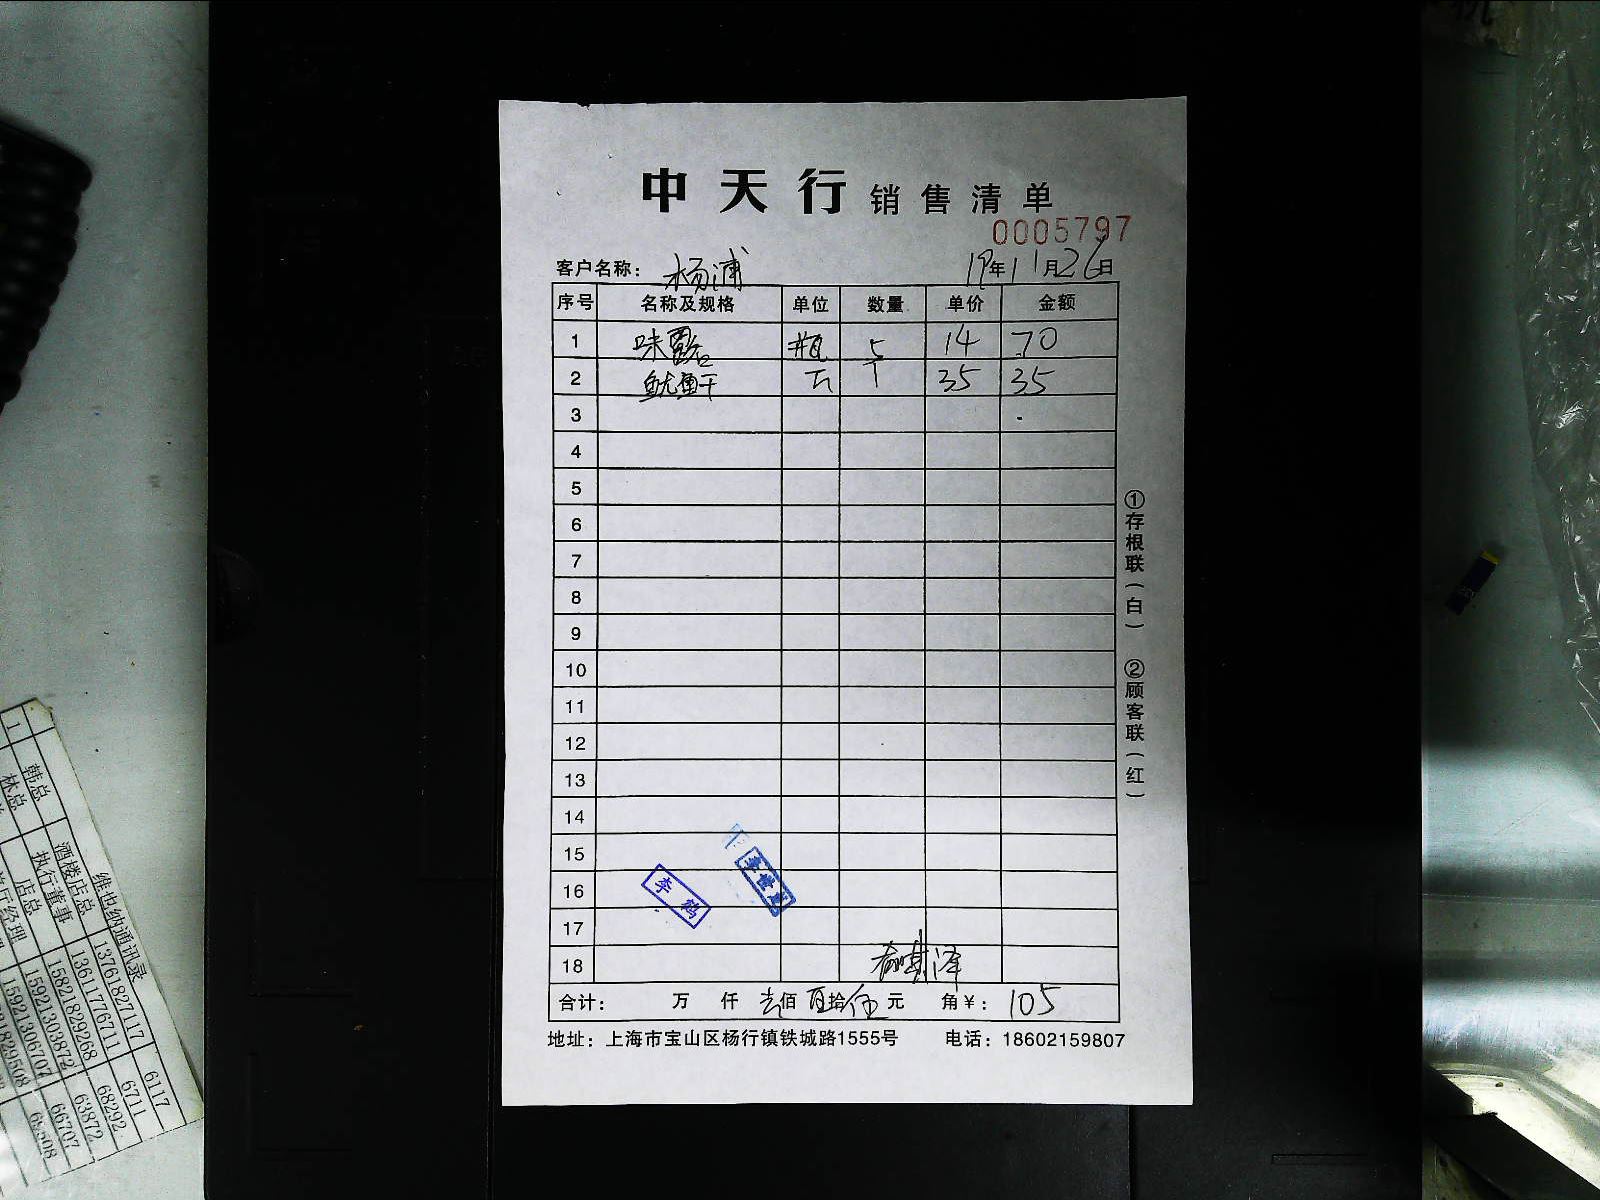 中天行 销售清单
0005797
客户名称： 杨浦 19年11月26日
序号 名称及规格 单位 数量 单价 金额
1 味霸 瓶 5 14 70
2 鱿鱼干 斤 1 35 35
3
4
5
6
7
8
9
10
11
12
13
14
15
16
17
18
李鹤
合计： 万 仟 佰 拾伍元 角¥：105
地址：上海市宝山区杨行镇铁城路1555号 电话：18602159807
①存根联（白） ②顾客联（红）
维也纳通讯录
1 韩总 酒楼店总 13761827117 6117
林总 执行董事 13611776711 6711
店总 15821829268 68292
15921303872 63872
15921306707 66707